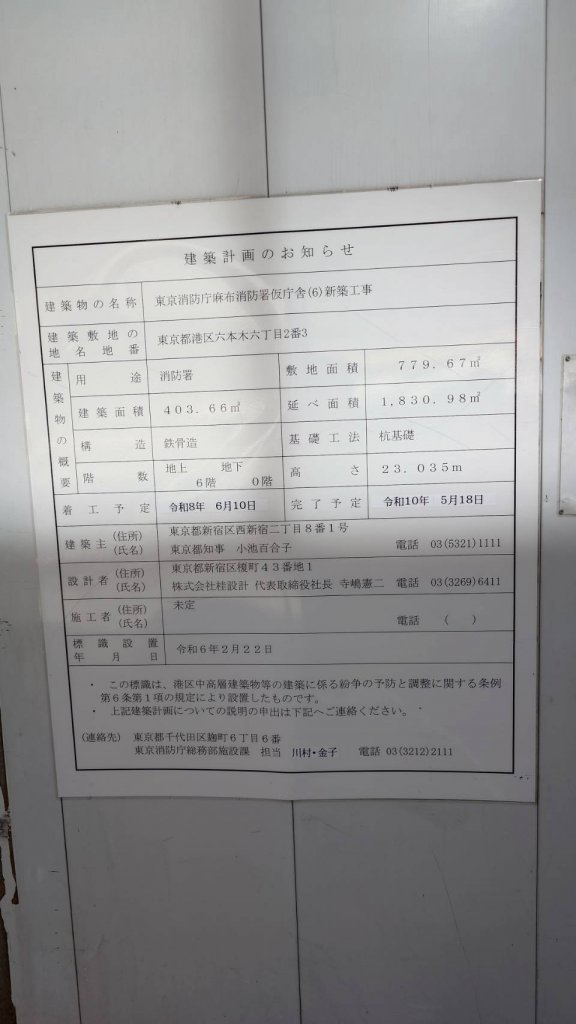 建築計画のお知らせ
建築物の名称 東京消防庁麻布消防署仮庁舎(6)新築工事
建築敷地の地名地番 東京都港区六本木六丁目2番3
建築物の概要
用途 消防署 敷地面積 779.67㎡
建築面積 403.66㎡ 延べ面積 1,830.98㎡
構造 鉄骨造 基礎工法 杭基礎
階数 地上 6階 地下 0階 高さ 23.035m
着工予定 令和8年 6月10日 完了予定 令和10年 5月18日
建築主 (住所) 東京都新宿区西新宿二丁目8番1号
(氏名) 東京都知事 小池百合子 電話 03(5321)1111
設計者 (住所) 東京都新宿区榎町43番地1
(氏名) 株式会社桂設計 代表取締役社長 寺嶋憲二 電話 03(3269)6411
施工者 (住所) 未定
(氏名) 電話 ( )
標識設置年月日 令和6年2月22日
・ この標識は、港区中高層建築物等の建築に係る紛争の予防と調整に関する条例
第6条第1項の規定により設置したものです。
・ 上記建築計画についての説明の申出は下記へご連絡ください。
(連絡先) 東京都千代田区麹町6丁目6番
東京消防庁総務部施設課 担当 川村・金子 電話 03(3212)2111